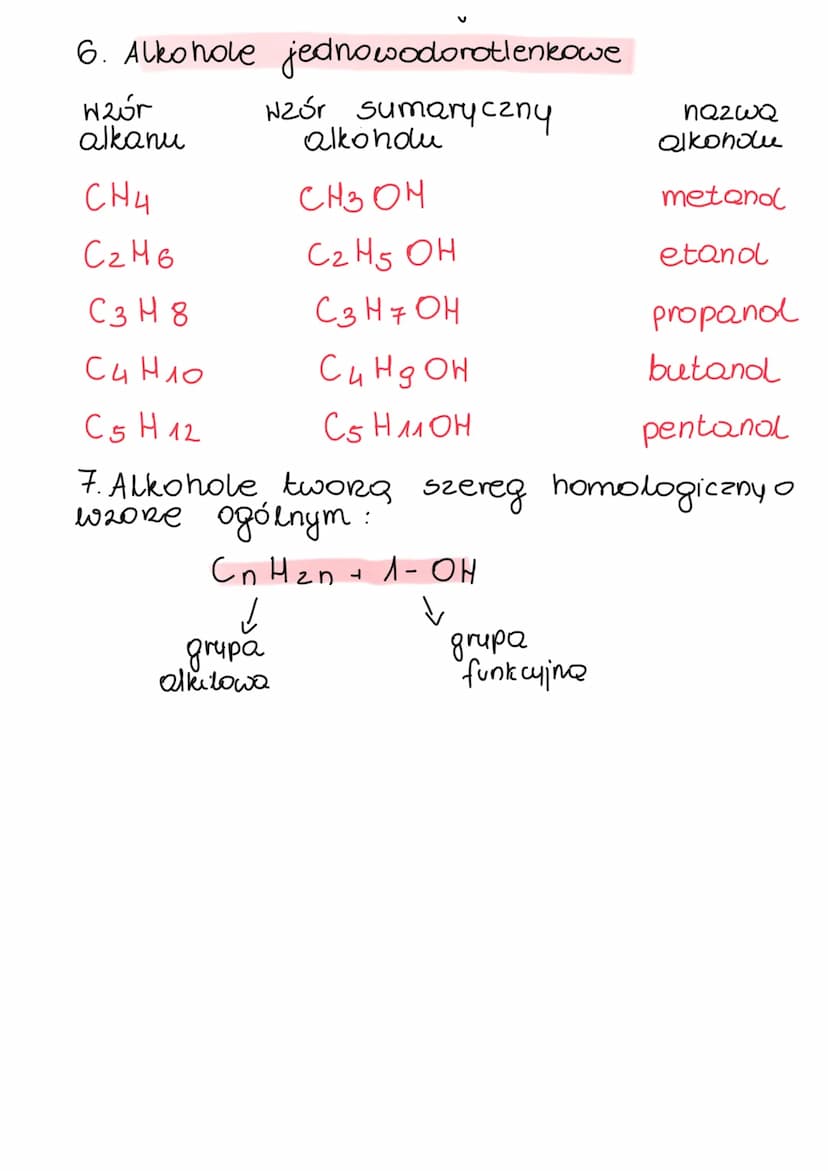 6. Alkohole jednowodorotlenkowe
wzór wzór sumaryczny nazwa
alkanu alkoholu alkoholu
CH4 CH3OH metanol
C2H6 C2H5OH etanol
C3H8 C3H7OH propanol
C4H10 C4H9OH butanol
C5H12 C5H11OH pentanol
7. Alkohole tworzą szereg homologiczny o
wzorze ogólnym:
CnH2n+1-OH
grupa grupa
alkilowa funkcyjna